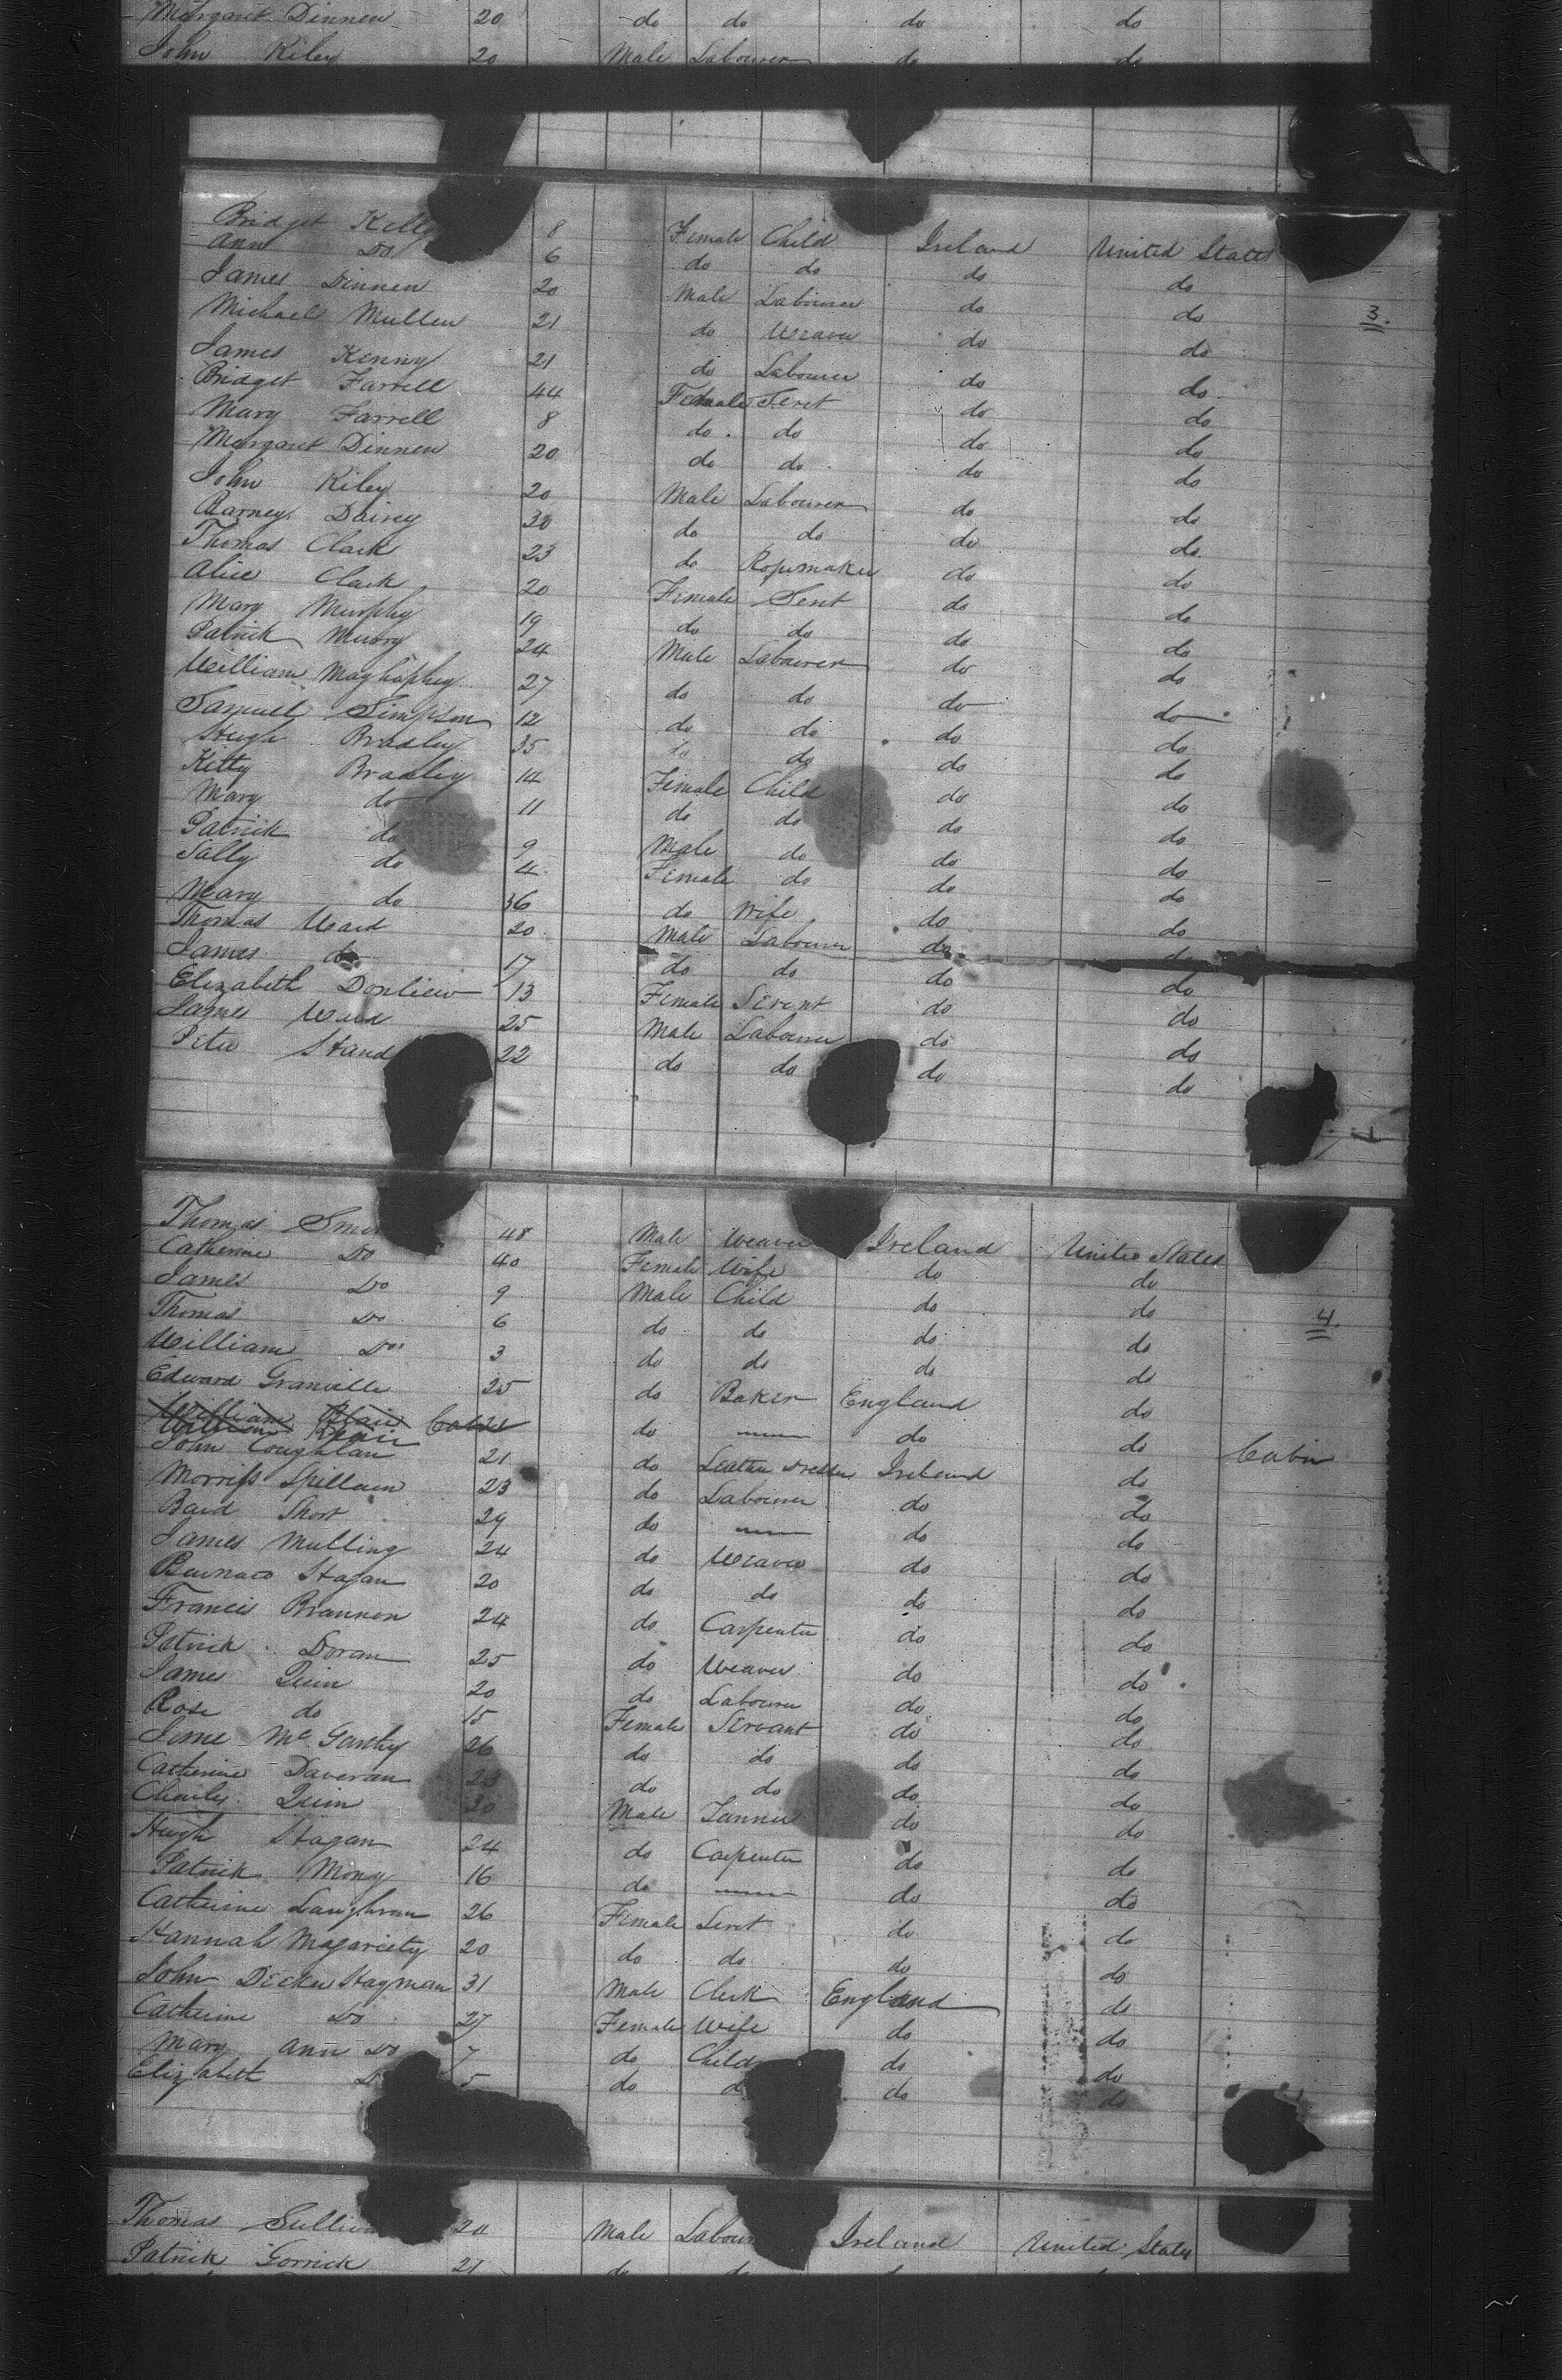 Margaret Dinnen 20 do do do do
John Riley 20 Male Labourer do do
Bridget Kelly 8 Female Child Ireland United States
Ann Do 6 do do do do
James Dinnen 20 Male Labourer do do
3.
Michael Mullen 21 do Weaver do do
James Kenny 21 do Labourer do do
Bridget Farrell 44 Female Servt do do
Mary Farrell 8 do do do do
Margaret Dinnen 20 do do do do
John Riley 20 Male Labourer do do
Barney Dairey 30 do do do do
Thomas Clark 23 do Ropemaker do do
Alice Clark 20 Female Servt do do
Mary Murphy 19 do do do do
Patrick Murry 24 Male Labourer do do
William Maghaphy 27 do do do do
Samuel Simpson 12 do do do do
Hugh Bradley 35 do do do do
Kitty Bradley 14 Female Child do do
Mary do 11 do do do do
Patrick do 9 Male do do do
Sally do 4 Female do do do
Mary do 36 do Wife do do
Thomas Ward 20 Male Labourer do do
James do 17 do do do do
Elizabeth 13 Female Servant do do
James Ward 25 Male Labourer do do
Peter Stand 22 do do do do
Thomas Smi 48 Male Weaver Ireland United States
Catherine Do 40 Female Wife do do
James Do 9 Male Child do do
4.
Thomas Do 6 do do do do
William Do 3 do do do do
Edward Granville 25 do Baker England do
William Blair do do do Cabin
John Coughlan 21 do Leather Dresser Ireland do
Morriss Spillain 23 do Labourer do do
Short 29 do do do
James Mulling 24 do Weaver do do
Hagan 20 do do do do
Francis Brannon 24 do Carpenter do do
Patrick Doran 25 do Weaver do do
James Quin 20 do Labourer do do
Rose do 15 Female Servant do do
Mc Garthy 26 do do do do
Catherine Daveran 23 do do do do
Charley Quin 20 Male Tanner do do
Hugh Hagan 24 do Carpenter do do
Patrick Mony 16 do do do
Catherine Laughran 26 Female Servt do do
Hannah Magariety 20 do do do do
John Decker Hagman 31 Male Clerk England do
Catherine Do 27 Female Wife do do
Mary Ann Do 7 do Child do do
Elizabeth D 5 do d do do
Thomas Sulliva 20 Male Labour Ireland United States
Patrick Gorrick 21 do do